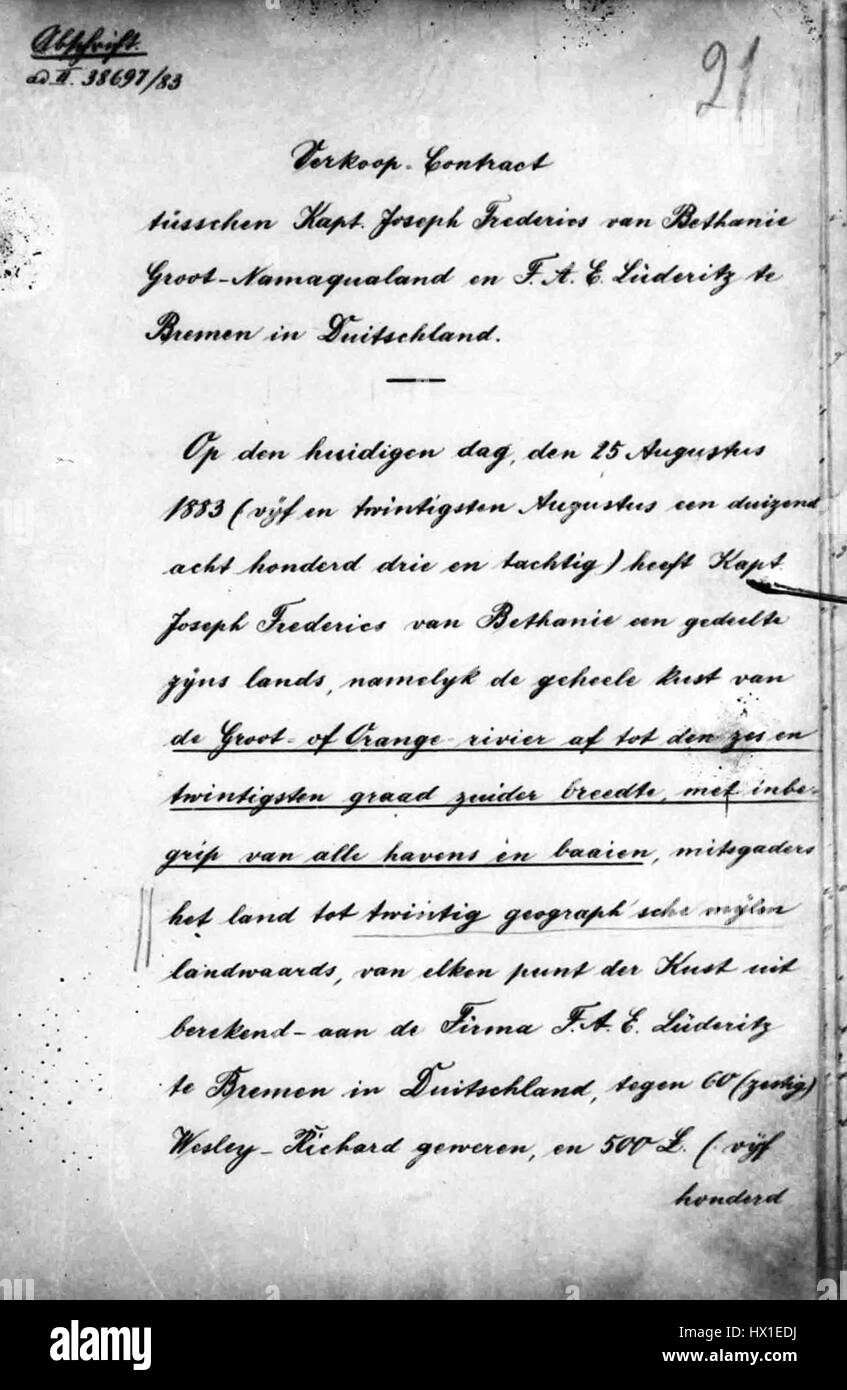 Abschrift.
ad II. 38697/83
21
Verkoop-Contract
tüsschen Kapt. Joseph Frederics van Bethanie
Groot-Namaqualand en F. A. E. Lüderitz te
Bremen in Duitschland.
Op den huidigen dag, den 25 Augustus
1883 (vijf en twintigsten Augustus een duizend
acht honderd drie en tachtig) heeft Kapt.
Joseph Frederics van Bethanie een gedeelte
zijns lands, namelyk de geheele kust van
de Groot- of Orange-rivier af tot den zes en
twintigsten graad zuider breedte, met inbe-
grip van alle havens en baaien, mitsgaders
het land tot twintig geograph'sche mijlen
landwaards, van elken punt der Kust uit
berekend - aan de Firma F. A. E. Lüderitz
te Bremen in Duitschland, tegen 60 (zestig)
Wesley-Richard geweren, en 500 £. (vijf
honderd
alamy stock photo
HX1EDJ
www.alamy.com